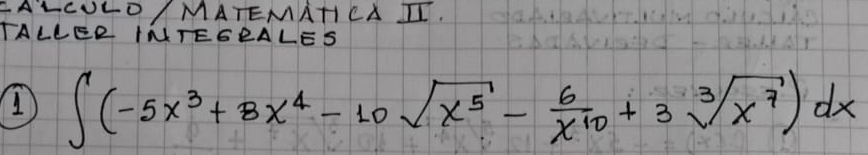 CALCULO / MATEMÁTICA II.
TALLER INTEGRALES
① ∫(-5x³ + 8x⁴ - 10 √x⁵ - 6/x¹⁰ + 3 ∛x⁷) dx